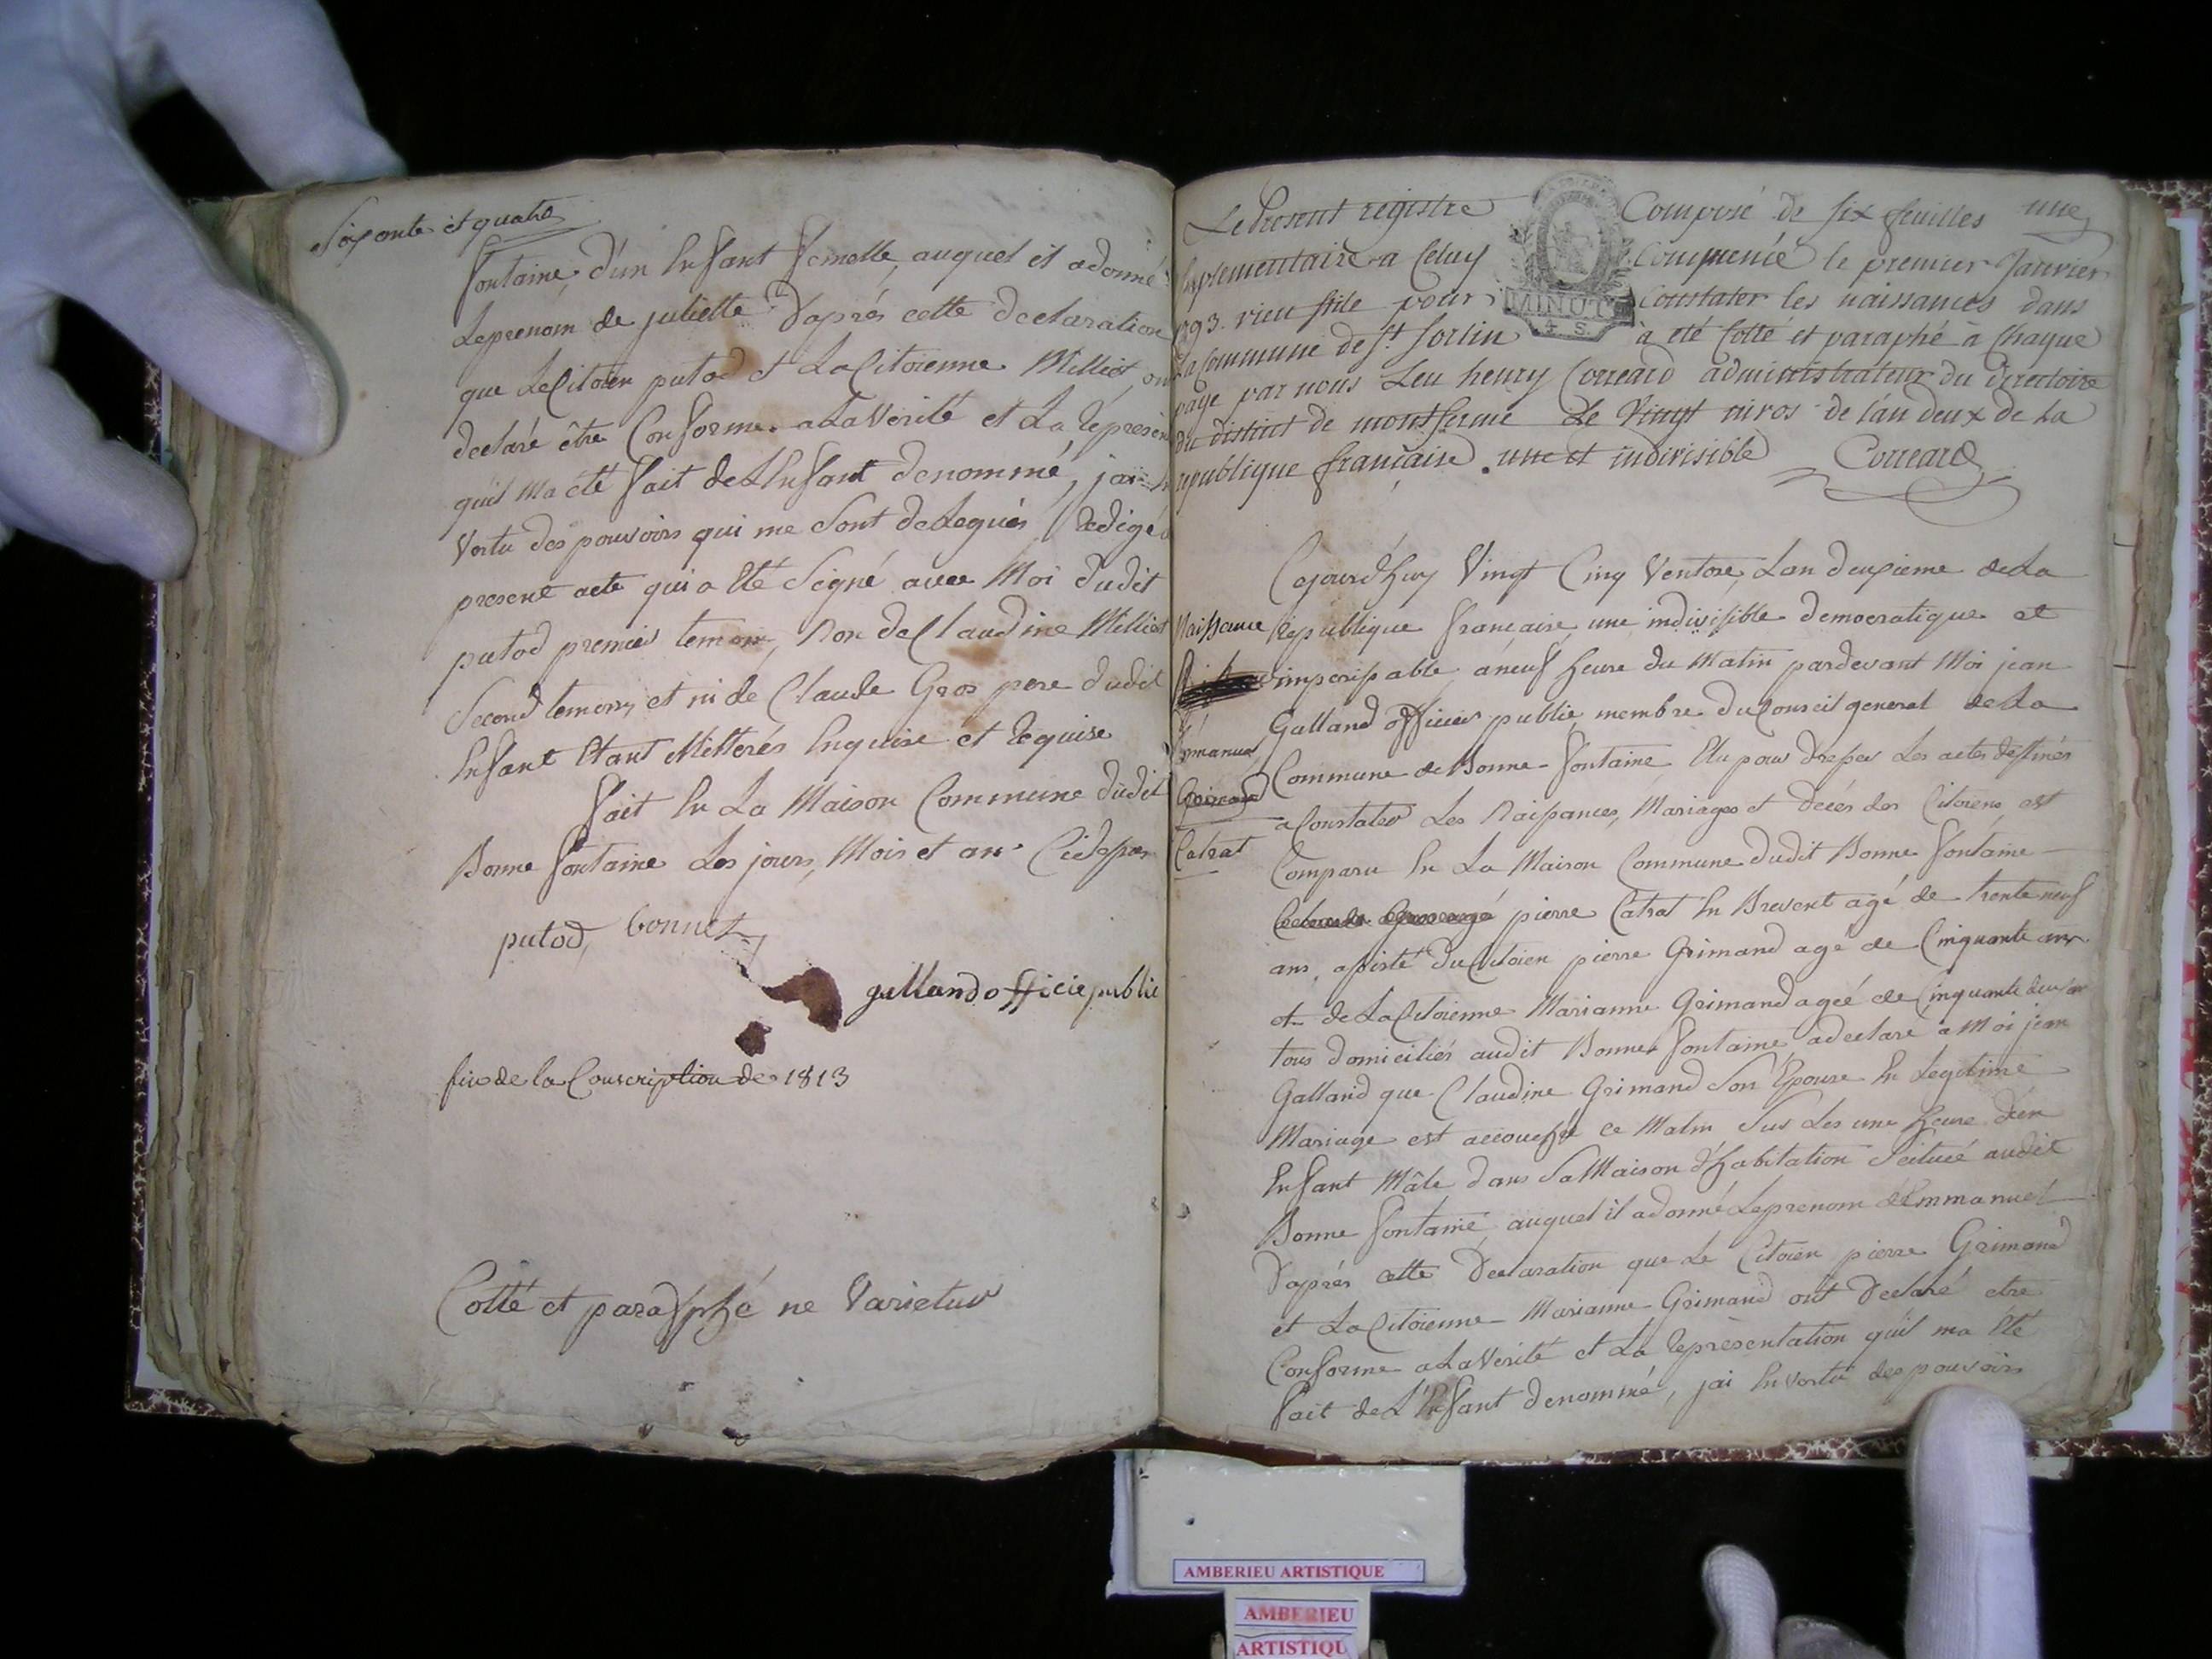 Soixante et quatre
fontaine, d'un Enfant femelle, auquel il a donné
Le prenom de juliette D'aprés cette declaration
que Le Citoien putod et La Citoienne Milliet ont
declaré être Conforme a La Verité et La Represen
qu'il ma eté fait de L'Enfant denommé, j'ai En
Vertu des pouvoirs qui me Sont delegués Redigé
present acte qui a Eté Signé avec Moi dudit
putod premier temoin, Non de Claudine Milliet
Second temoin, et ni de Claude Gros pere dudit
Enfant Etant illiterés Enquise et Requise
fait En La Maison Commune dudit
Bonne fontaine Les jours, Mois et an Cidessus
putod, bonnet
galland officie public
fin de la Conscription de 1813
Cotté et paraphé ne Varietur
Le Present registre Composé de six feuilles une
suplementaire a Celuy Commencé le premier Janvier
1793. vieu stile pour Constater les naissances dans
La Commune de St. Sorlin à eté Cotté et paraphé à Chaque
page par nous Leu henry Correard administrateur du directoire
du district de montferme Le Vingt nivos de l'an deux de La
republique française. une et indivisible Correard
MINUTE
4 S.
Cejourd'huy Vingt Cinq Ventose, L'an deuxieme de La
Republique francaise, une indivisible democratique et
imperissable a neuf heure du Matin pardevant Moi jean
Galland officier public, membre du Conseil general de La
Commune de Bonne-fontaine Elu pour dresser Les actes destinés
a Constater Les Naissances, Mariages et decés des Citoiens, est
Comparu En La Maison Commune dudit Bonne fontaine
pierre Catrat En Brevent agé de trente neuf
ans, assisté du Citoien pierre Grimand agé de Cinquante ans
et de La Citoienne Marianne Grimand ageé de Cinquante deux an
tous domiciliés audit Bonne fontaine a declaré a Moi jean
Galland que Claudine Grimand Son Epouse En Legitime
Mariage est accouchée ce Matin Sur Les une heure D'un
Enfant Mâle dans Sa Maison d'habitation Scituée audit
Bonne fontaine auquel il a donné Le prenom d'Emmanuel
D'aprés cette Declaration que Le Citoien pierre Grimand
et La Citoienne Marianne Grimand ont Declaré etre
Conforme a La Verité et La Representation qu'il ma Eté
fait de L'Enfant denommé, j'ai En Vertu des pouvoirs
Naissance
Emanuel
Catrat
AMBERIEU ARTISTIQUE
AMBERIEU
ARTISTIQU